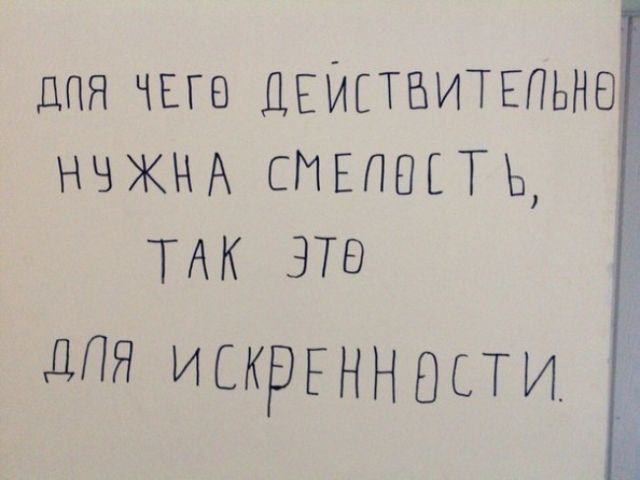 ДЛЯ ЧЕГО ДЕЙСТВИТЕЛЬНО
НУЖНА СМЕЛОСТЬ,
ТАК ЭТО
ДЛЯ ИСКРЕННОСТИ.